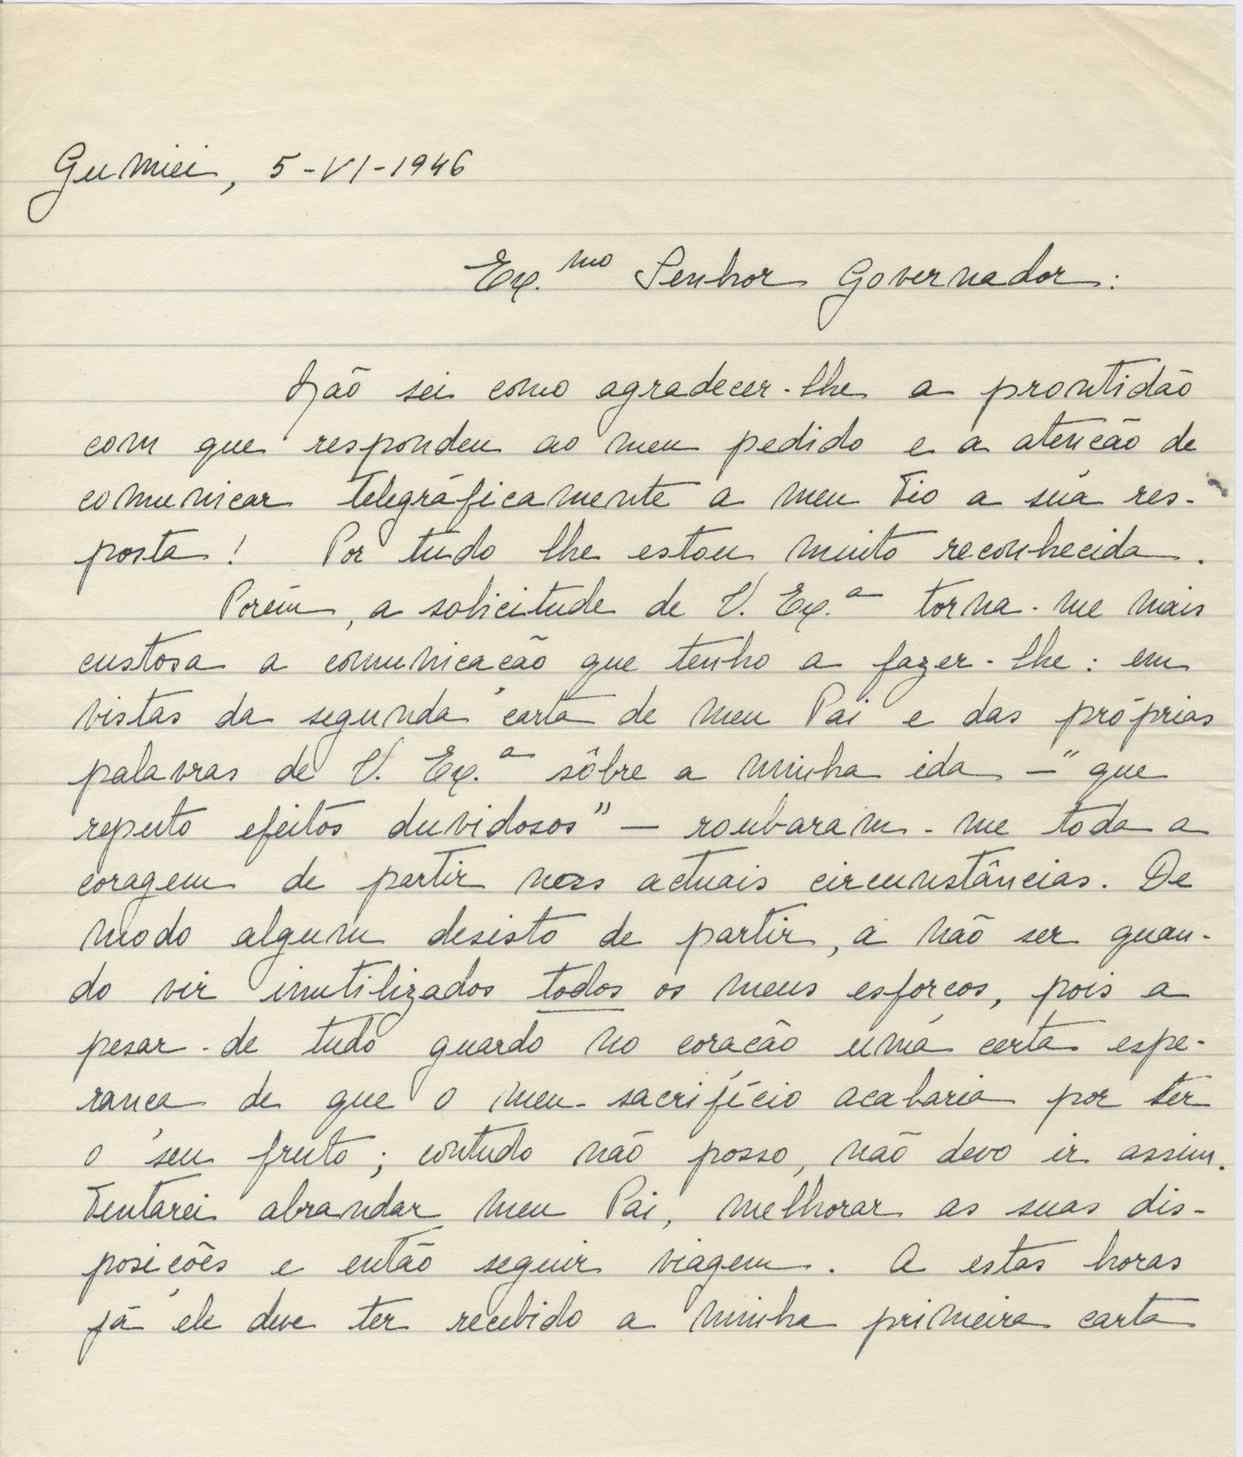 Gumiei, 5-VI-1946
Ex.mo Senhor Governador:
Não sei como agradecer-lhe a prontidão
com que respondeu ao meu pedido e a atenção de
comunicar telegràficamente a meu Tio a sua res-
posta! Por tudo lhe estou muito reconhecida.
Porém, a solicitude de V. Ex.a torna-me mais
custosa a comunicação que tenho a fazer-lhe: em
vistas da segunda carta de meu Pai e das próprias
palavras de V. Ex.a sôbre a minha ida — "que
reputo efeitos duvidosos" — roubaram-me toda a
coragem de partir nas actuais circunstâncias. De
modo algum desisto de partir, a não ser quan-
do vir inutilizados todos os meus esforços, pois a
pesar-de tudo guardo no coração uma certa espe-
rança de que o meu sacrifício acabaria por ter
o seu fruto; contudo não posso, não devo ir assim.
Tentarei abrandar meu Pai, melhorar as suas dis-
posições e então seguir viagem. A estas horas
já êle deve ter recebido a minha primeira carta